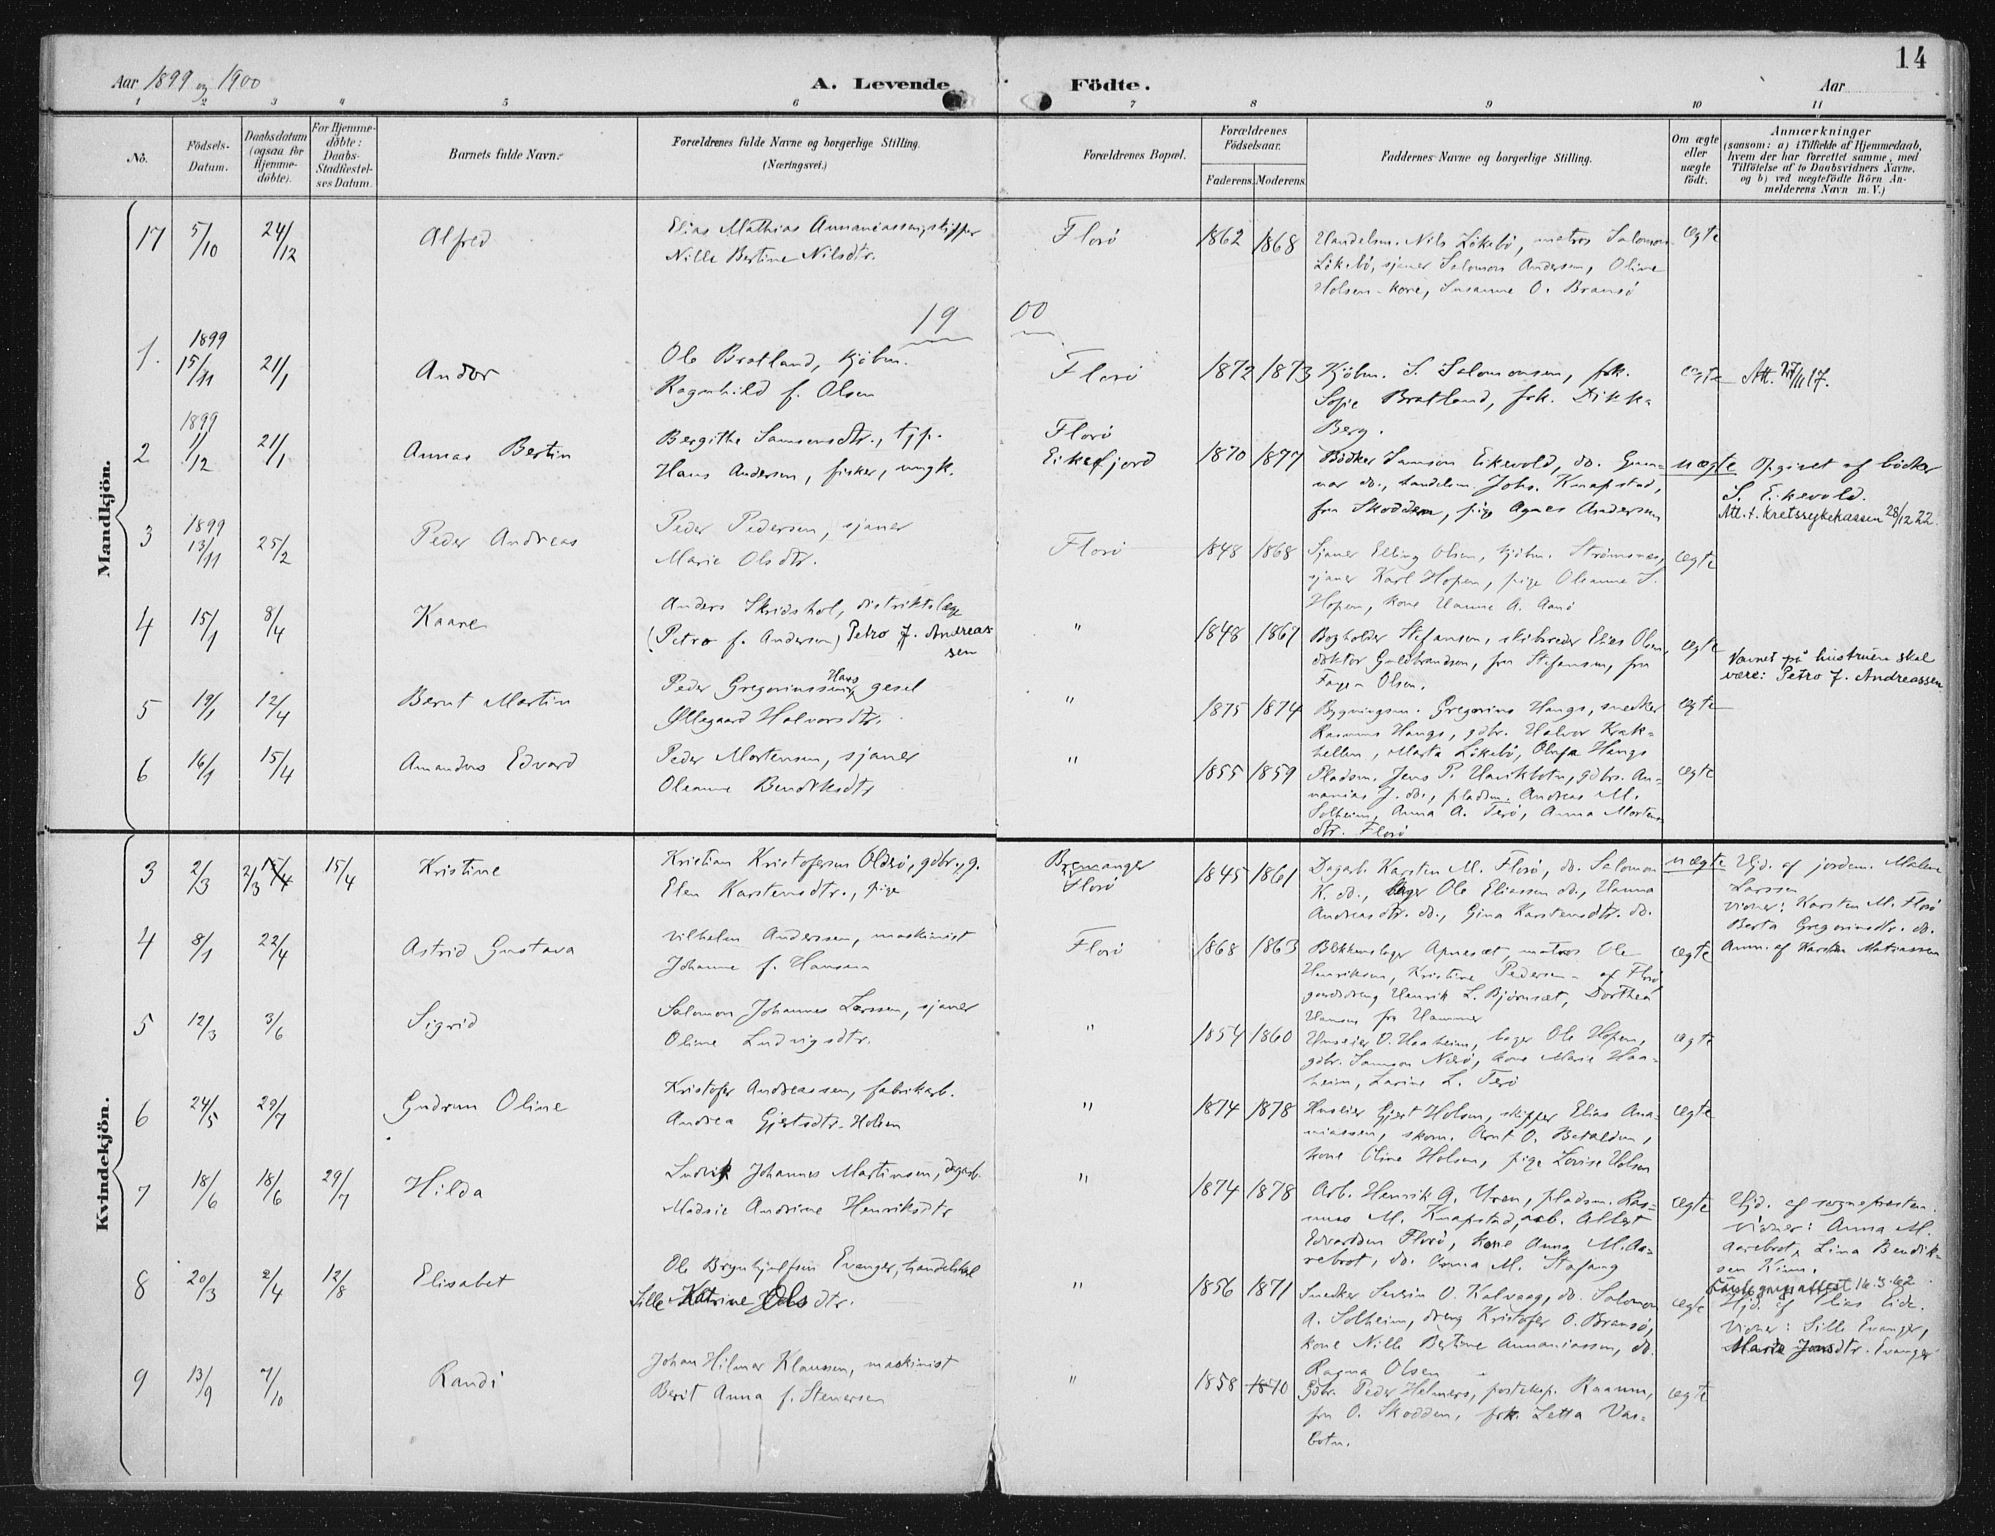 14
Aar 1899 og 1900
A. Levende
Födte.
Aar
1 2 3 4 5 6 7 8 9 10 11
No.
Födsels-
Datum.
Daabsdatum
(ogsaa for
Hjemme-
döbte).
For Hjemme-
döbte:
Daabs-
Stadfæstel-
ses Datum.
Barnets fulde Navn.
Forældrenes fulde Navne og borgerlige Stilling.
(Næringsvei.)
Forældrenes Bopæl.
Forældrenes
Födselsaar.
Faderens. Moderens.
Faddernes Navne og borgerlige Stilling.
Om ægte
eller
uægte
födt.
Anmærkninger
(saasom: a) i Tilfælde af Hjemmedaab,
hvem der har forrettet samme, med
Tilföielse af to Daabsvidners Navne,
og b) ved uægtefödte Börn An-
melderens Navn m. V.)
Mandkjön.
17 5/10 24/12 Alfred
Elias Mathias Annaniassen, skipper
Nille Bertine Nilsdtr.
Florö 1862 1868
Handelsm. Nils Lökebö, matros Salomon
Lökebö, sjauer Salomon Andersen, Oline
Holsen kone, Susanne O. Bransö
ægte
19 00
1. 1899 15/11 21/1 Andor
Ole Bratland, kjöbm.
Ragnhild f. Olsen
Florö 1872 1873
Kjöbm. S. Salomonsen, frk.
Sofie Bratland, frk. Dikka
Berg.
ægte Att. 27/11 17.
2 1899 1/12 21/1 Annas Bertin
Bergithe Samsonsdtr.,
Hans Andersen, fisker, ungk.
Florö
Eikefjord 1870 1877
Bödker Samson Eikevold, do. Gun-
nar do., handelsm. Johs. Knapstad,
fru Skodden, pige Agnes Andersen
uægte Opgivet af bödker
S. Eikevold.
Att. t. kretssykekassen 28/12 22.
3 1899 13/11 25/2 Peder Andreas
Peder Pedersen, sjauer
Marie Olsdtr.
Florö 1848 1868
Sjauer Elling Olsen, kjöbm. Strömsnes,
sjauer Karl Hopen, pige Olianne S.
Hopen, kone Hanne A.
ægte
4 15/1 8/4 Kaare
Anders Skridshol, distriktslæge
(Petra f. Andersen) Petro J. Andreas
sen
" 1848 1867
Bogholder Stefansen, skibsreder Elias Olsen,
doktor Guldbrandson, fru Stefansen, fru
Olsen.
ægte
Navnet på hustruen skal
være: Petro J. Andreassen
5 19/1 12/4 Bernt Martin
Peder Gregoriussen Haugs gesel
Øllegaard Halvorsdtr.
" 1875 1874
Bygningsm. Gregorius Haugs, snedker
Rasmus Haugs, gdbr. Halvor Krak-
hellen, Marta Lökebö, Olufa Haugs
ægte
6 16/1 15/4 Amandus Edvard
Peder Mortensen, sjauer
Olianne Bendiksdtr.
" 1855 1859
Pladsm. Jens P. Havikbotn, gdbr. An-
nanias J. do., pladsm. Andreas M.
Solheim, Anna A. Terö, Anna Mortens
dtr. Florö
ægte
Kvindekjön.
3 2/3 2/3 15/4 15/4 Kristine
Kristian Kristofersen Oldrö, gdbr., g.
Elen Karstensdtr., pige
Bremanger
Florö 1845 1861
Dagarb. Karsten M. Florö, do. Salomon
K. do., bager Ole Eliassen do., Hanna
Andreasdtr. do., Gina Karstensdtr. do.
uægte Hjd. af jordem. Malene
Larssen
Vidner: Karsten M. Florö
Berta Gregoriusdtr. do.
Anm. af Karsten Matiassen
4 8/1 22/4 Astrid Gustava
Vilhelm Anderssen, maskinist
Johanne f. Hansen
Florö 1868 1863
Blikkenslager Apnesæt, matros Ole
Henriksen, Kristine Pedersen - af Florö,
gaardsdreng Henrik L. Björnsæt, Dorthea
Hansen fra Hammer
ægte
5 12/3 3/6 Sigrid
Salomon Johannes Larssen, sjauer
Oline Ludvigsdtr.
" 1854 1860
Huseier O. Haaheim, bager Ole Hopen,
gdbr. Samson Nærö, kone Marie Haa-
heim, Larine L. Terö
ægte
6 24/5 29/7 Gudrun Oline
Kristofer Andreassen, fabrikarb.
Andrea Gjertsdtr. Holsen
" 1874 1878
Huseier Gjert Holsen, skipper Elias Ana-
niassen, skom. Arnt O. Betalden,
kone Oline Holsen, pige Lovise Holsen
ægte
7 18/6 18/6 29/7 Hilda
Ludvik Johannes Martinsen, dagarb.
Madsie Andrine Henriksdtr
" 1874 1878
Arb. Henrik A. Uren, pladsm. Ras-
mus M. Knapstad, arb. Albert
Edvardsen Florö, kone Anna M. Aa-
rebrot, do. Anna M. Stafang
ægte Hjd. af sognepresten.
Vidner: Anna M.
Aarebrot, Lina Bendik-
sen Kinn.
8 20/3 2/4 12/8 Elisabet
Ole Brynhjulfsen Evanger, handelsbet
Sille Katrine Olsdtr.
" 1856 1871
Snedker Severin O. Kalvaag, do. Salomon
A. Solheim, dreng Kristofer O. Bransö,
kone Nille Bertine Annaniassen, do.
Ragna Olsen
ægte 16.3.62
Hjd. af Elias Eide.
Vidner: Sille Evanger,
Marie Jonsdtr. Evanger
9 13/9 7/10 Randi
Johan Hilmar Klaussen, maskinist
Berit Anna f. Stenersen
" 1858 1870
Gdbr. Peder Helmers, posteksp. Raaum,
fru O. Skodden, frk. Letta Vas-
botn.
ægte